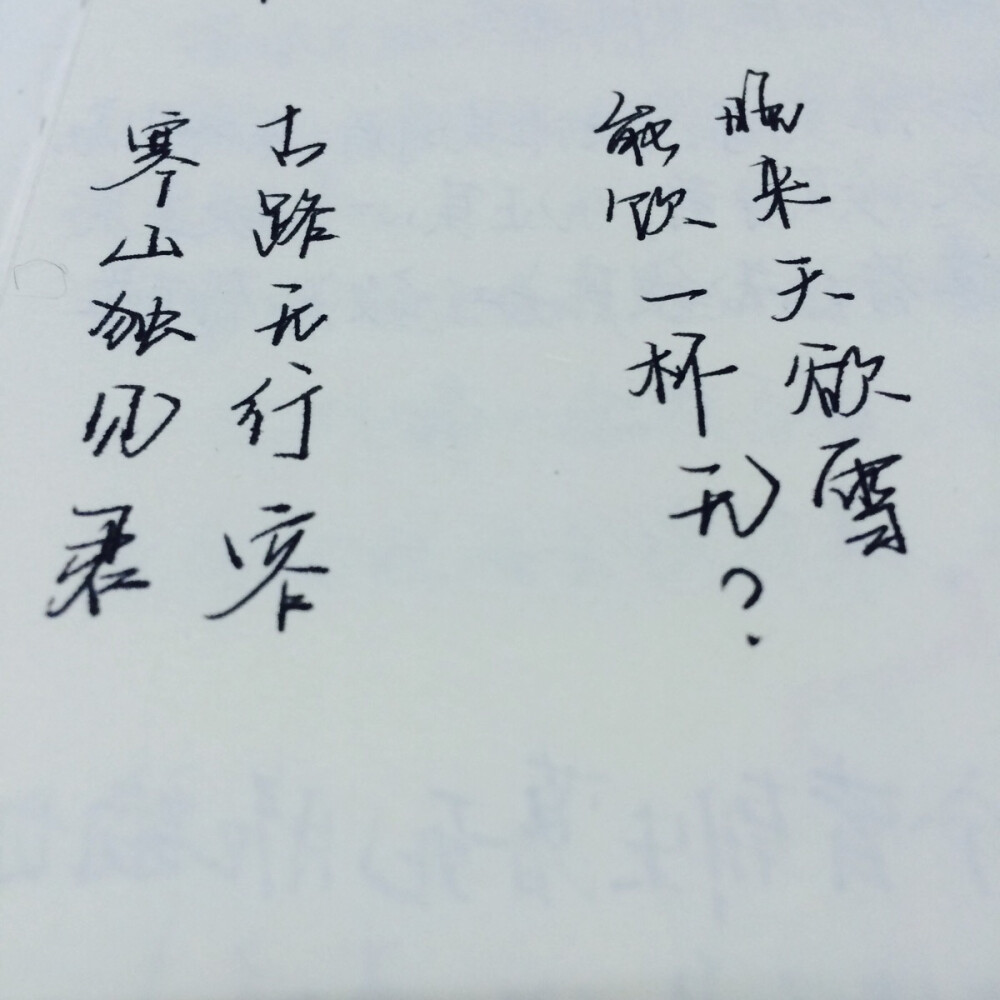 晚来天欲雪
能饮一杯无？
古路无行客
寒山独见君